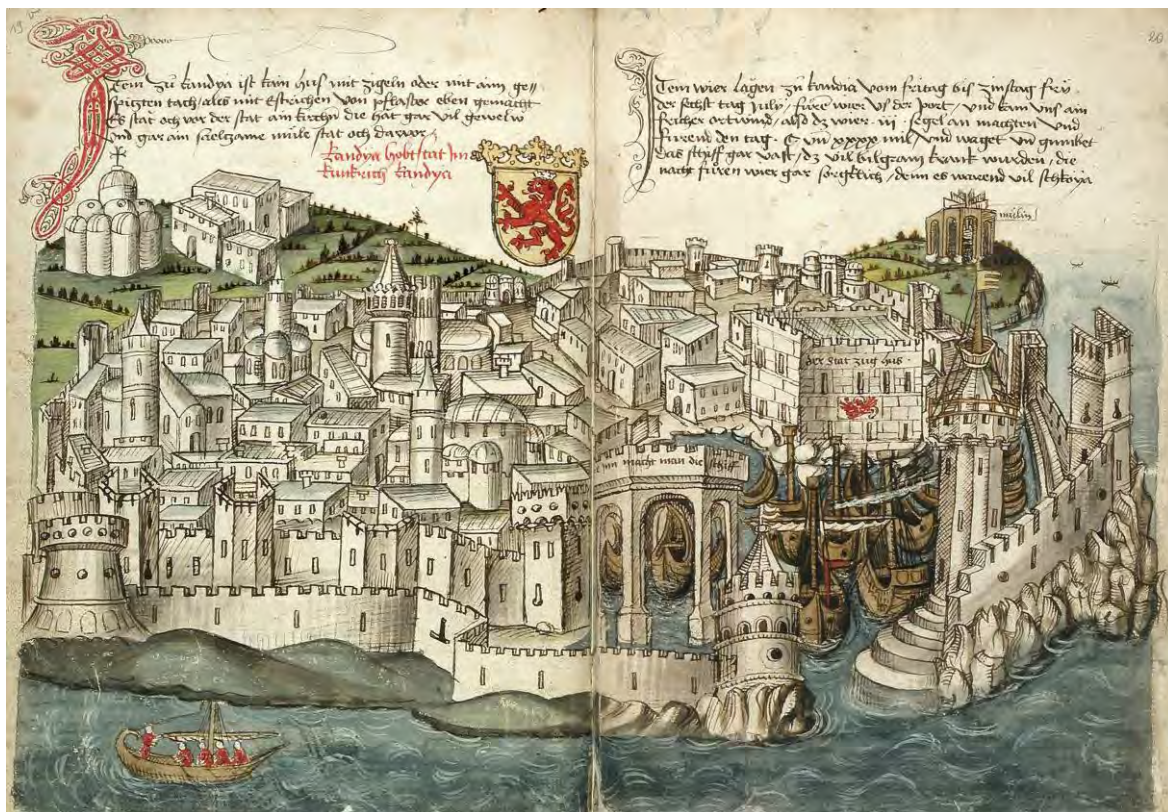 19
Item zu kandya ist kain hus mit zigeln oder mit aim ge//
spizten tach / als mit estrichen von pflaster eben gemacht
Es stat och vor der stat ain kirchn die hat gar vil gewelw
und gar ain sseltzame müle stat och darvor /
kandya hobt stat Im
kunkrich kandya
20
Item wier lagen zu kandia vom fritag bis zinstag frü
der sechst tag July / fure wier us der port / und kam uns ain
frischer ortwind / also dz wier iii segel an machten und
furend den tag C un xxxx mil / und waget un gumbet
das schiff gar vast / dz vil bilgram krank wurden / die
nacht furen wier gar sorgklich / denn es warend vil schkoya
milin
der stat zug hus
Inn macht man die schiff